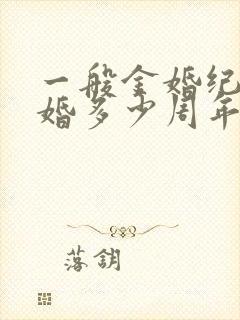 一般金婚纪
婚多少周年
落钥